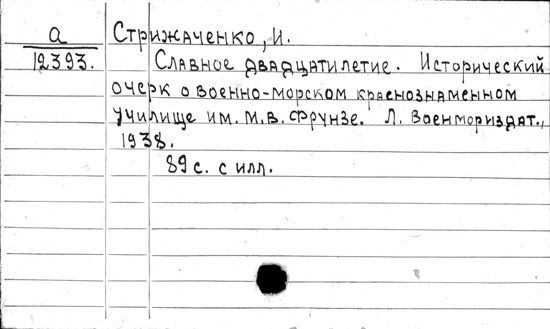 а Стрижаченко, И.
12393. Славное двадцатилетие. Исторический
очерк о военно-морском краснознаменном
училище им. М.В. Фрунзе. Л. Военмориздат.,
1938.
89 с. с илл.